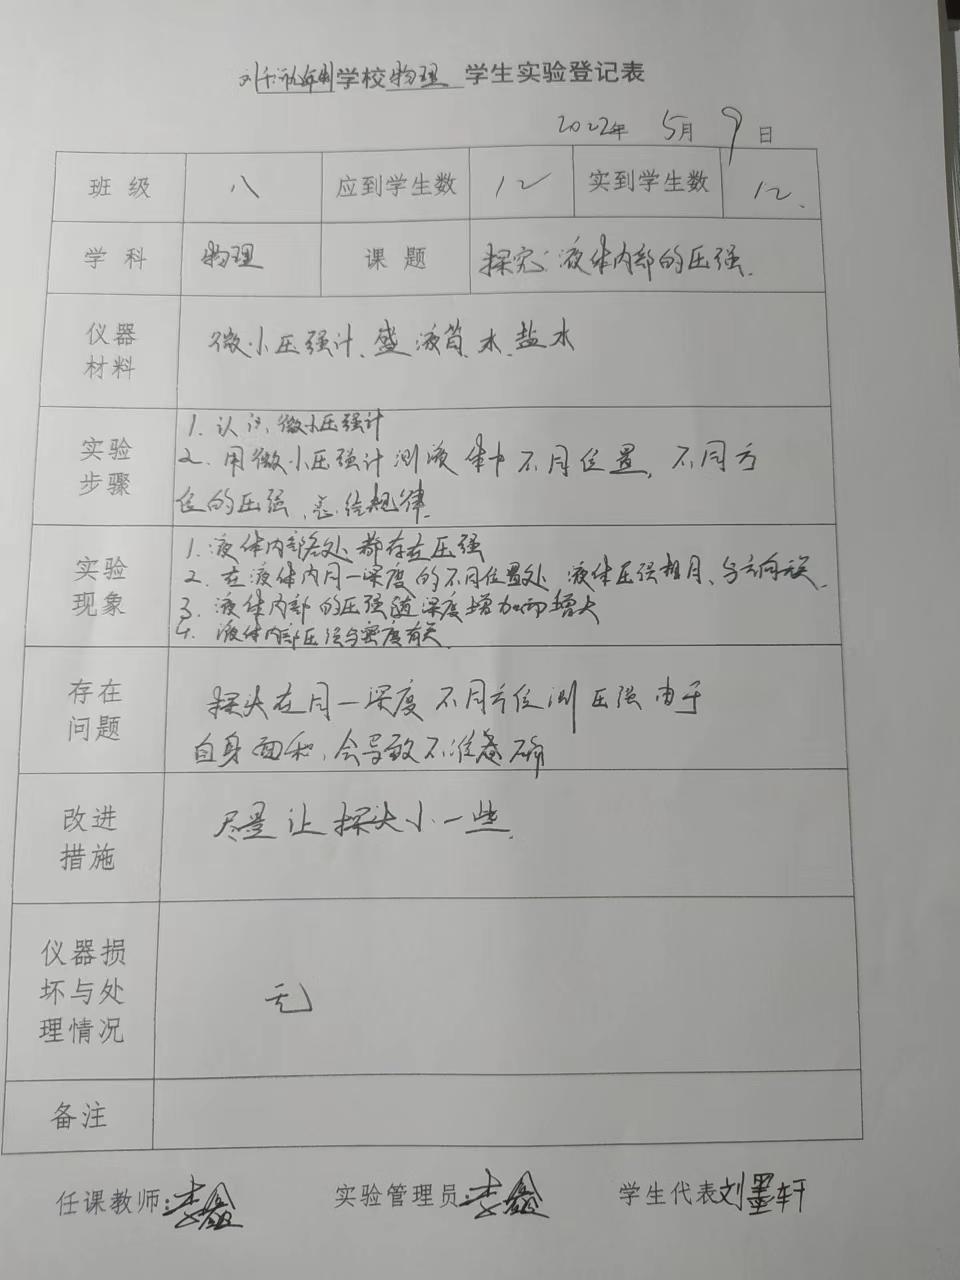 学校物理 学生实验登记表
2022年 5月 9日
班级 八 应到学生数 12 实到学生数 12.
学科 物理 课题 探究:液体内部的压强.
仪器材料 微小压强计、盛液筒、水、盐水
实验步骤
1. 认识微小压强计
2. 用微小压强计测液体中不同位置, 不同方
位的压强, 总结规律.
实验现象
1. 液体内部各处都存在压强
2. 在液体内同一深度的不同位置处, 液体压强相同、与方向无关.
3. 液体内部的压强随深度增加而增大
4. 液体内部压强与密度有关.
存在问题
探头在同一深度不同方位测压强由于
自身面积, 会导致不准确
改进措施
尽量让探头小一些.
仪器损坏与处理情况
无
备注
任课教师:李鑫 实验管理员:李鑫 学生代表刘墨轩